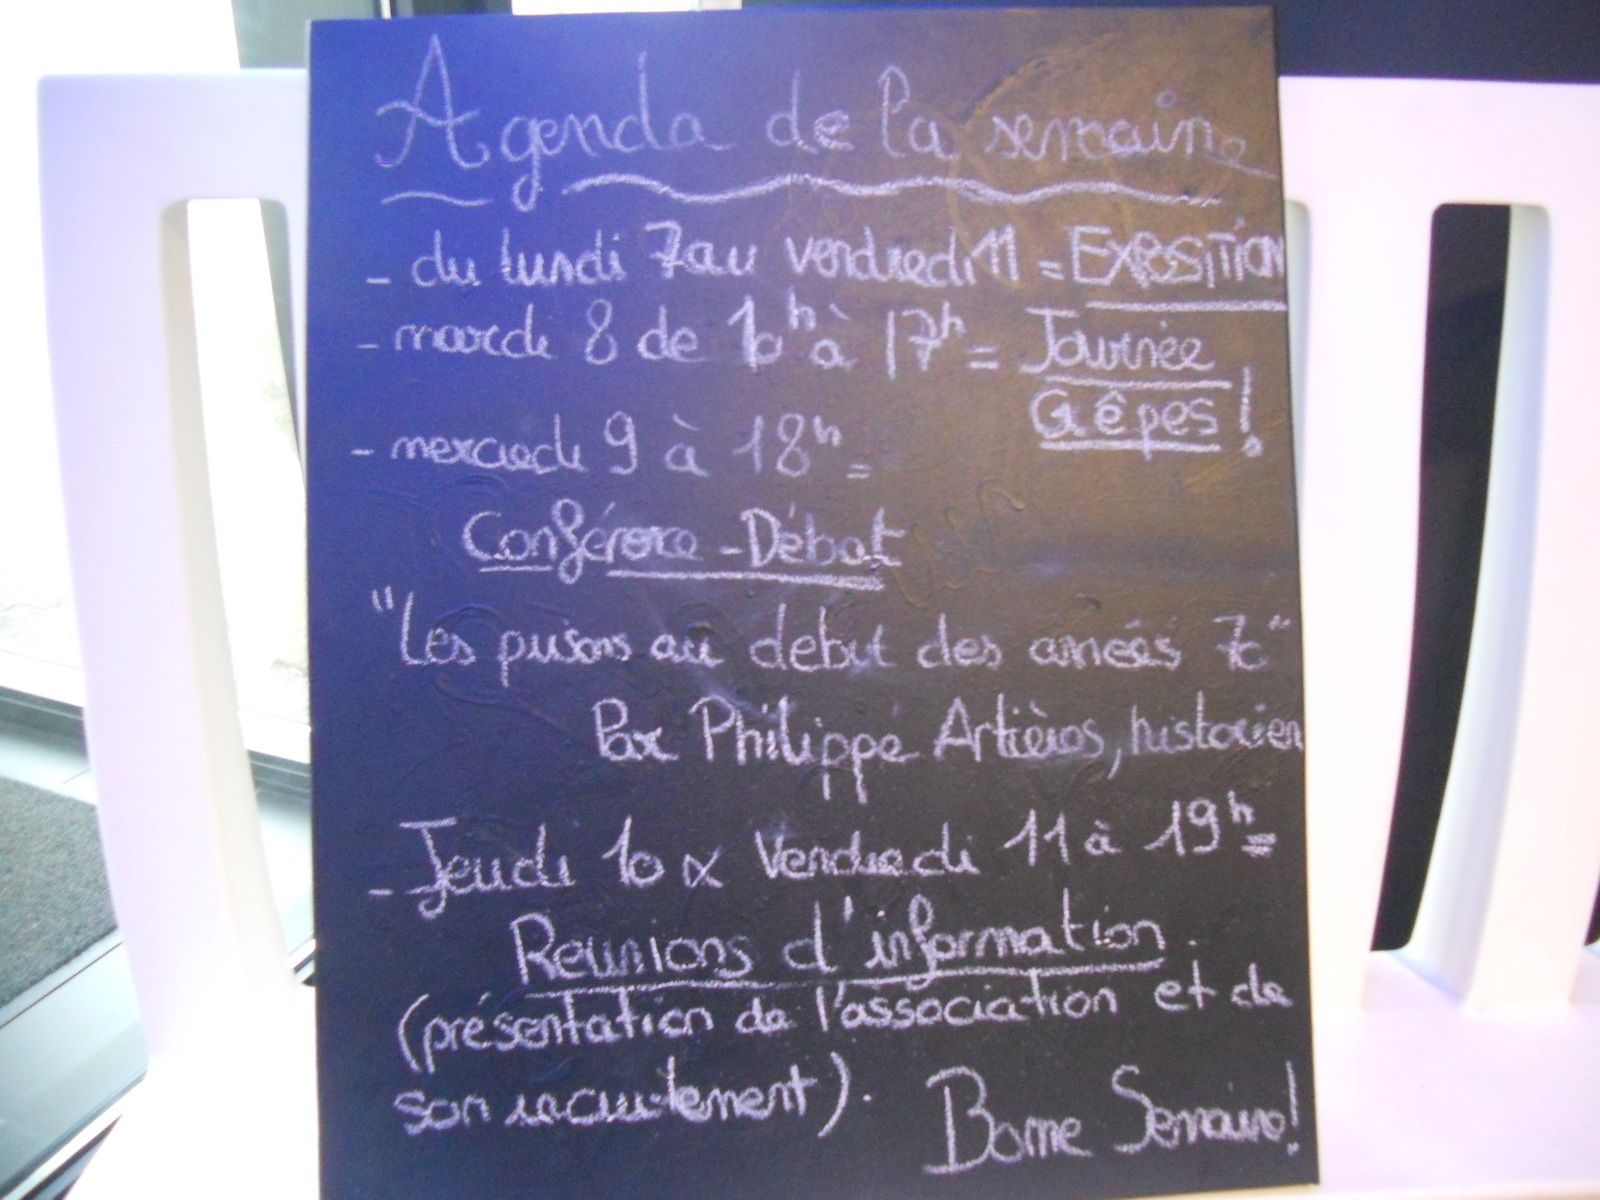 Agenda de la semaine
- du lundi 7 au vendredi 11 = EXPOSITION
- mardi 8 de 10h à 17h = Journée
Gêpes !
- mercredi 9 à 18h =
Conférence - Débat
"Les prisons au debut des années 70"
Par Philippe Artières, historien
- Jeudi 10 & Vendredi 11 à 19h =
Réunions d'information.
(présentation de l'association et de
son recrutement).
Bonne Semaine !